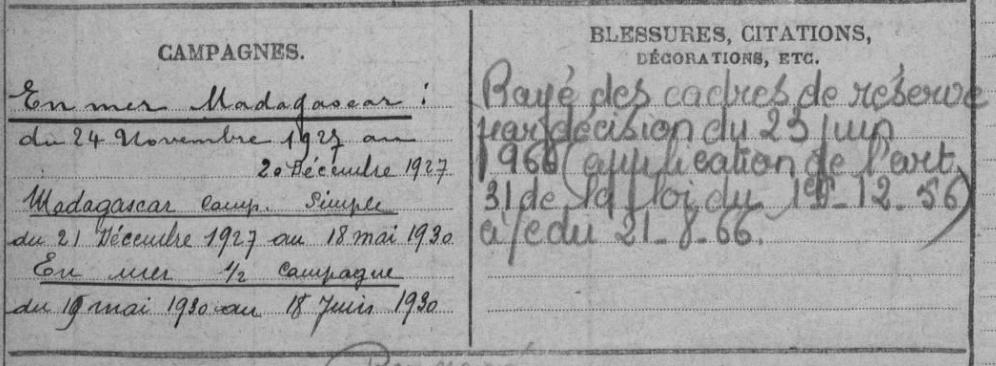 CAMPAGNES.
En mer Madagascar :
du 24 Novembre 1927 au
20 Décembre 1927
Madagascar Camp. Simple
du 21 Décembre 1927 au 18 mai 1930
En mer 1/2 Campagne
du 19 mai 1930 au 18 Juin 1930
BLESSURES, CITATIONS,
DÉCORATIONS, ETC.
Rayé des cadres de réserve
par décision du 23 juin
1966 (application de l'art.
31 de la loi du 1er-12-56)
à/c du 21-8-66.